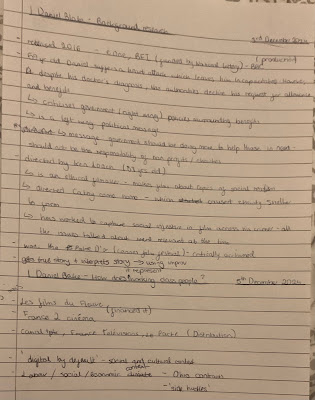 I Daniel Blake - Background research
3rd December 2024
- released 2016 - eOne, BFI (funded by National lottery) - BBC
(producers)
- Fifty old Daniel suffers a heart attack which leaves him incapacitated. However,
despite his doctor's diagnosis, the authorities decline his request for allowance
and benefits
↳ criticises government (right wing) policies surrounding benefits
↳ is a left wing political message
↳ message - government should be doing more to help those in need -
should not be the responsibility of our people / charities
- directed by Ken Loach (87 yrs old)
↳ is an ethical filmmaker - makes films about types of social matter
↳ directed Cathy come home - which caused charity Shelter
to form
↳ been worked to capture social injustice in film across his career - all
the issues talked about were relevant at the time
- won the Palme D'or (cannes film festival) - critically acclaimed
- gets true story + interprets story → using improv
I Daniel Blake - How does it represent working class people?
5th December 2024
- Les films du Fleuve (financed it)
- France 2 cinéma
- Canal+, France Télévisions, Le Pacte (Distribution)
- 'digital by default' - social and cultural context
- Labour / social / economic context - Char contrain
- 'side hustles'